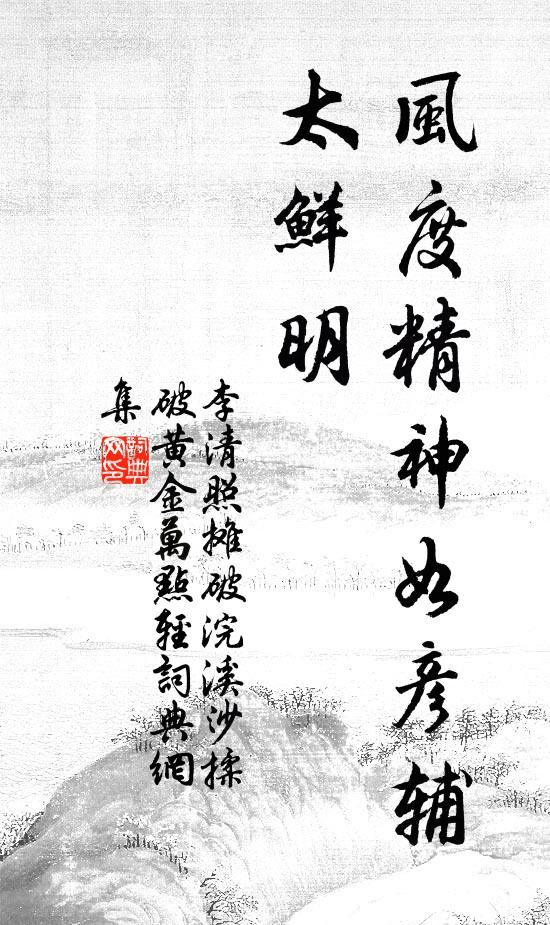 風度精神如彥輔
太鮮明
李清照攤破浣溪沙揉
破黃金萬點輕詞典網
集
詞典網印